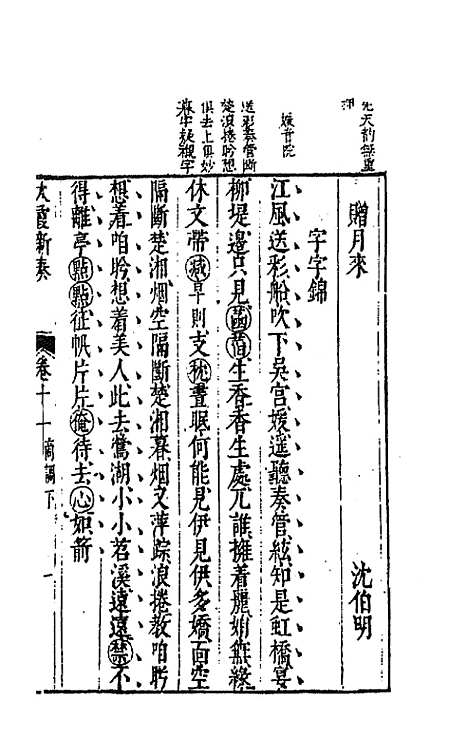 先天韵無重
押
媛音院
送彩奏管斷
楚浪捲盼想
俱去上俱妙
幕中疑襯字
贈月來
沈伯明
字字錦
江風送彩船吹下吳宮媛遥聽奏管絃知是虹橋宴
柳堤邊只見菡萏生香香生處兀誰擁着麗娟無緣
休文帶减早則支秘晝眠何能見伊見伊多嬌面空
隔斷楚湘烟空隔斷楚湘暮烟又萍踪浪捲教咱盻
想着咱盻想着美人此去鶯湖小小苕溪遠遠禁不
得離亭點點征帆片片俺待去心如箭
太霞新奏
卷十一
南調下
一